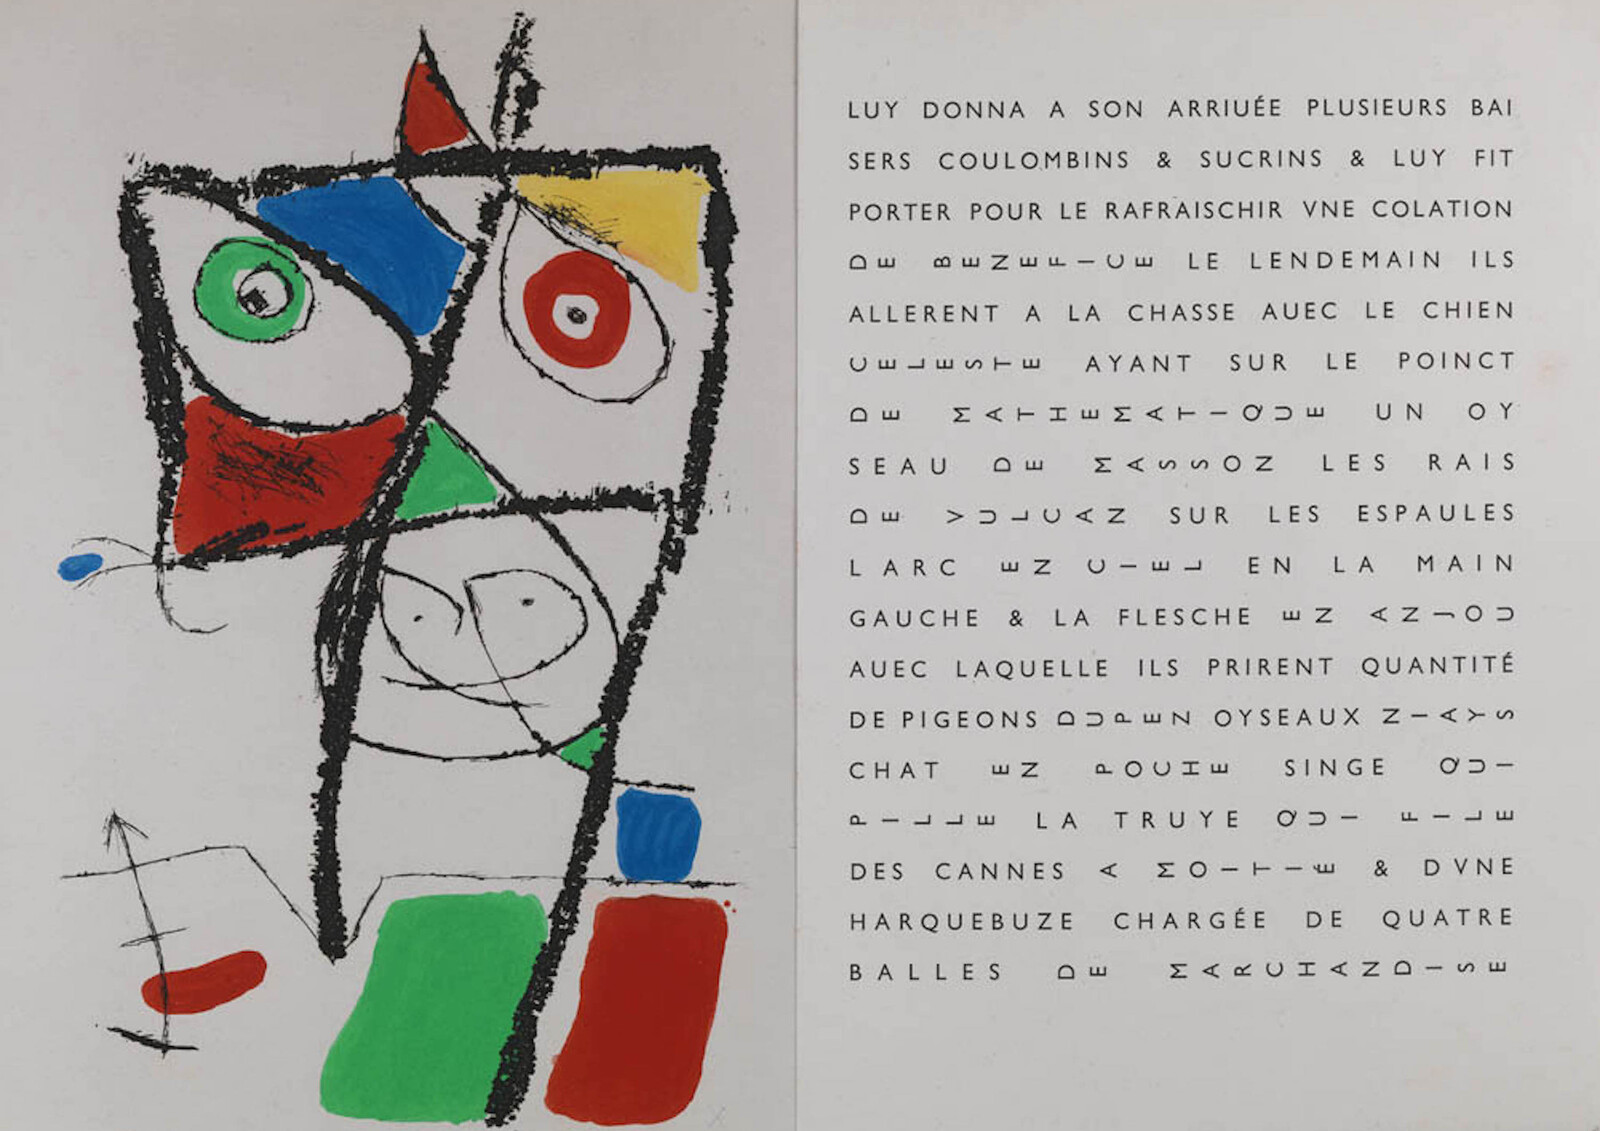 LUY DONNA A SON ARRIUÉE PLUSIEURS BAI
SERS COULOMBINS & SUCRINS & LUY FIT
PORTER POUR LE RAFRAISCHIR VNE COLATION
DE BENEFICE LE LENDEMAIN ILS
ALLERENT A LA CHASSE AUEC LE CHIEN
CELESTE AYANT SUR LE POINCT
DE MATHEMATIQUE UN OY
SEAU DE MASSON LES RAIS
DE VULCAN SUR LES ESPAULES
LARC EN CIEL EN LA MAIN
GAUCHE & LA FLESCHE EN ANJOU
AUEC LAQUELLE ILS PRIRENT QUANTITÉ
DE PIGEONS DUPEN OYSEAUX NIAYS
CHAT EN POCHE SINGE QUI
PILLE LA TRUYE QUI FILE
DES CANNES A MOITIÉ & DVNE
HARQUEBUZE CHARGÉE DE QUATRE
BALLES DE MARCHANDISE